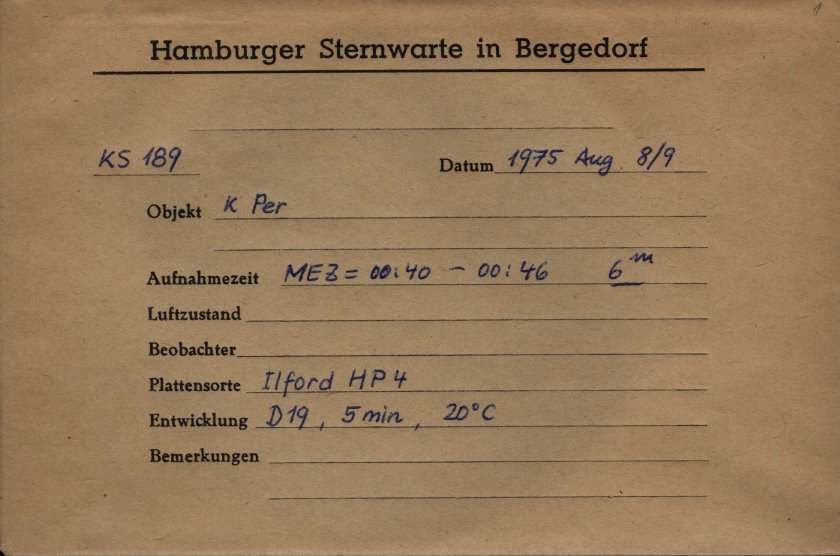 1
Hamburger Sternwarte in Bergedorf
KS 189 Datum 1975 Aug. 8/9
Objekt K Per
Aufnahmezeit MEZ = 00:40 – 00:46 6ᵐ
Luftzustand
Beobachter
Plattensorte Ilford HP4
Entwicklung D19, 5 min, 20°C
Bemerkungen